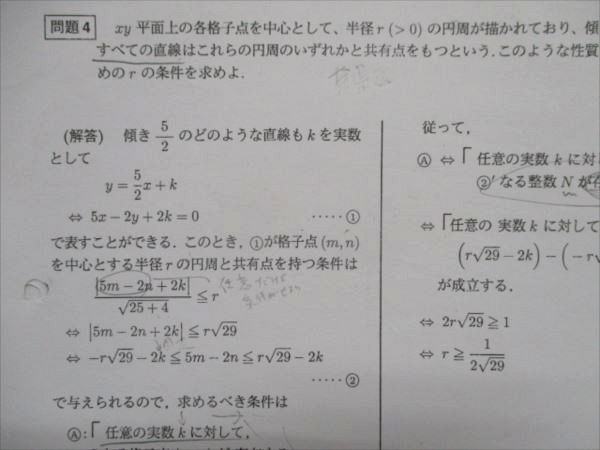 問題4 xy 平面上の各格子点を中心として、半径 r (> 0) の円周が描かれており、傾
すべての直線はこれらの円周のいずれかと共有点をもつという. このような性質
めの r の条件を求めよ.
(解答) 傾き 5/2 のどのような直線も k を実数
として
y = 5/2 x + k
⇔ 5x − 2y + 2k = 0 ・・・・・①
で表すことができる. このとき, ①が格子点 (m, n)
を中心とする半径 r の円周と共有点を持つ条件は
|5m − 2n + 2k| / √25 + 4 ≦ r
⇔ |5m − 2n + 2k| ≦ r√29
⇔ −r√29 − 2k ≦ 5m − 2n ≦ r√29 − 2k
・・・・・②
で与えられるので, 求めるべき条件は
Ⓐ:「 任意の実数 k に対して,
従って,
Ⓐ ⇔「 任意の実数 k に対
②′ なる整数 N が存
⇔「任意の 実数 k に対して
(r√29 − 2k) − (−r√
が成立する.
⇔ 2r√29 ≧ 1
⇔ r ≧ 1 / 2√29